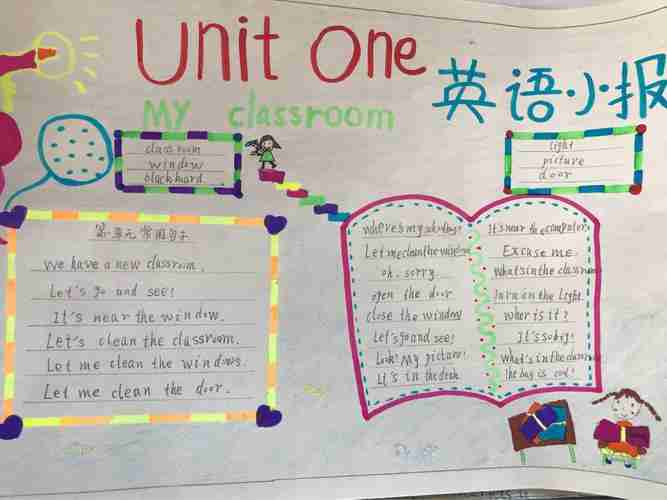 Unit One
英语小报
My classroom
classroom
window
blackboard
light
picture
door
第一单元常用句子
We have a new classroom.
Let's go and see!
It's near the window.
Let's clean the classroom.
Let me clean the windows.
Let me clean the door.
where's my
Let me clean the
oh, sorry
open the door
close the window
Let's go and see!
Look! My picture!
It's in the desk
It's near the computer.
Excuse me.
what's in the classroom
turn on the light.
wher is it?
It's so big!
what's in the classroom
The bag is